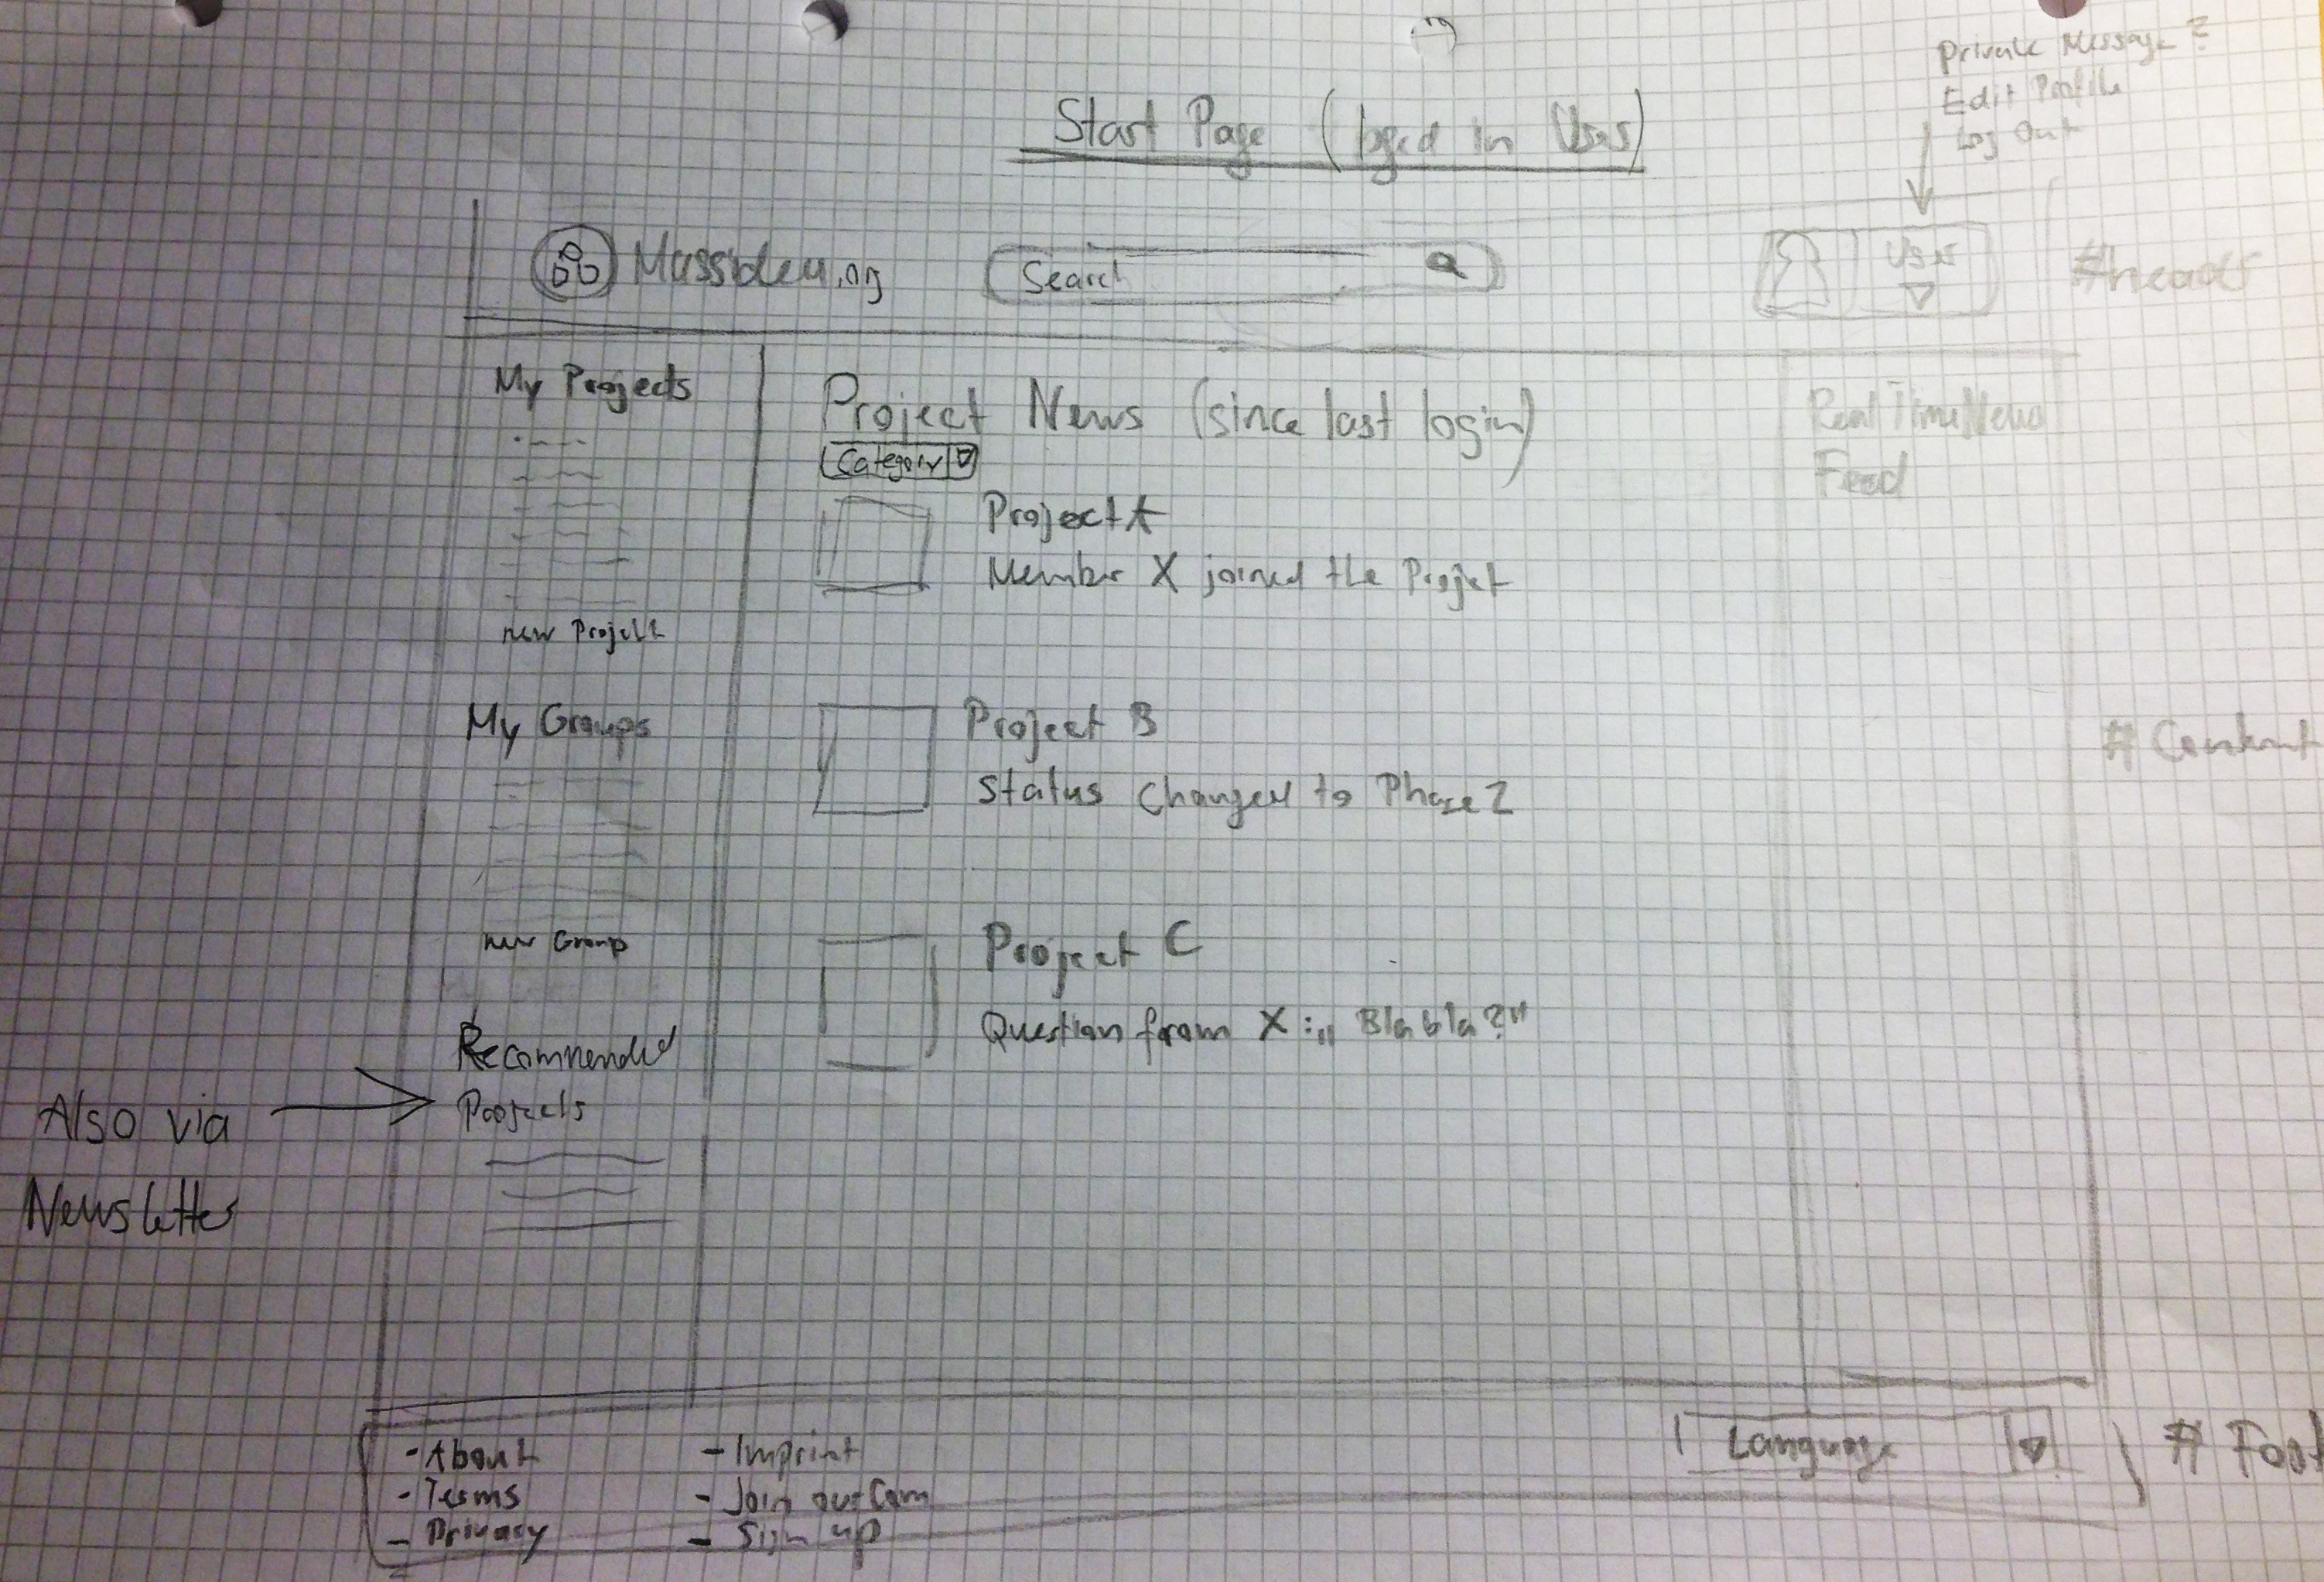 Private Message?
Edit Profile
Log Out
Start Page (loged in User)
Massidea.org
Search
User
#header
My Projects
new Projekt
My Groups
new Group
Recommended
Projects
Also via
Newsletter
Project News (since last login)
Category
Project A
Member X joined the Projet
Project B
Status Changed to Phase 2
Project C
Question from X: „Bla bla?"
Real Time News
Feed
# Content
- About
- Terms
- Privacy
- Imprint
- Join our Com
- Sign up
Language
# Foot